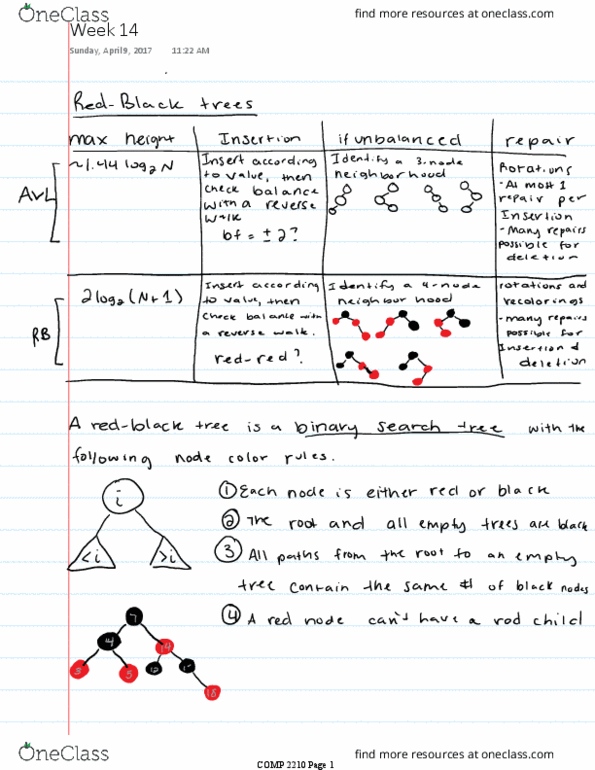 OneClass
find more resources at oneclass.com
Week 14
Sunday, April 9, 2017 11:22 AM
Red-Black trees
max height
Insertion
if unbalanced
repair
AVL
~1.44 log2 N
Insert according
to value, then
check balance
with a reverse
walk
bf = ± 2?
Identify a 3-node
neighborhood
Rotations
- At most 1
repair per
Insertion
- Many repairs
possible for
deletion
RB
2 log2 (N+1)
Insert according
to value, then
check balance with
a reverse walk.
red-red?
Identify a 4-node
neighbour hood
rotations and
recolorings
- many repairs
possible for
Insertion &
deletion
A red-black tree is a binary search tree with the
following node color rules.
i
<i >i
① Each node is either red or black
② The root and all empty trees are black
③ All paths from the root to an empty
tree contain the same # of black nodes
④ A red node can't have a rod child
7
4
5
18
OneClass
find more resources at oneclass.com
COMP 2210 Page 1